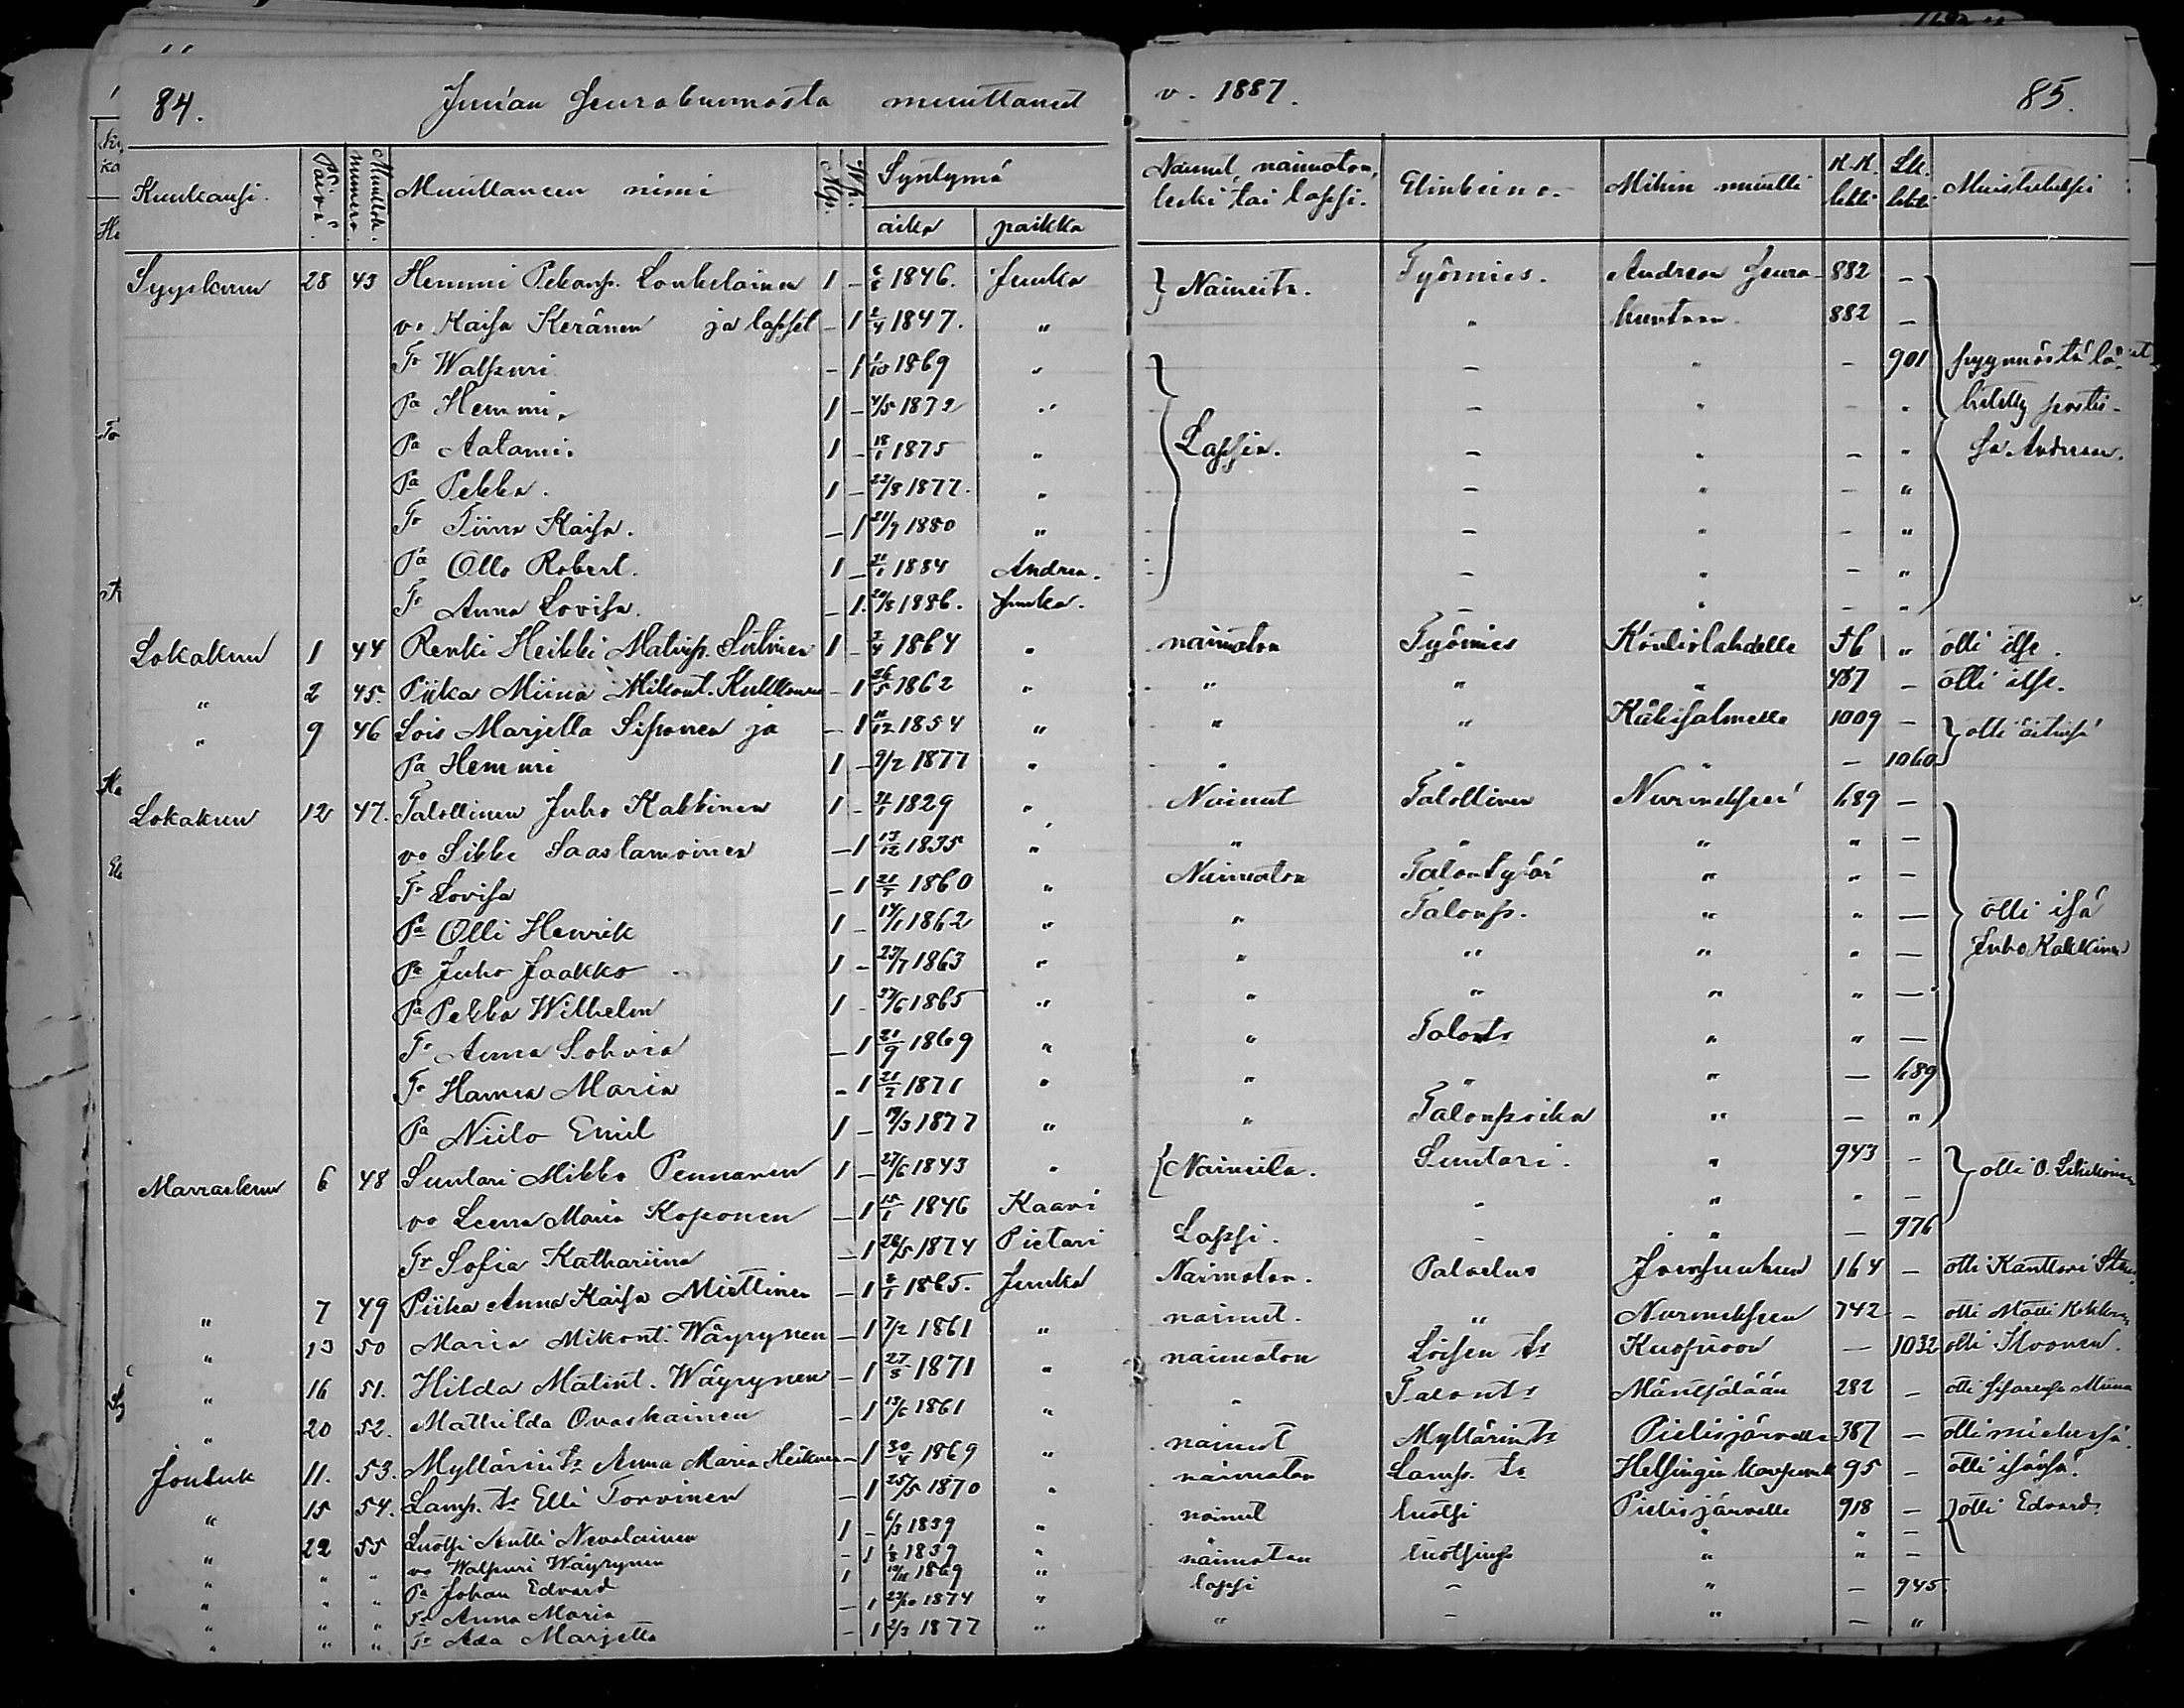 84. Juuan Seurakunnasta muuttanut v. 1887. 85.
Kuukausi. Päivä. Muuttok. nummero. Muuttaneen nimi Mp. Wp. Syntymä aika paikka Nainut, naimaton, leski tai lapsi. Elinkeino. Mihin muutti K.K. lehti Lk. lehti Muistutuksia
Syyskuun 28 43 Hemmi Pekanp. Loukelainen 1 – 1846. Juuka } Naineita. Työmies. Andrean Seura- 882 –
vo Kaisa Keränen ja lapset – 1 2/4 1847. " " kuntaan. 882 –
Tr Walpuri – 1 1/10 1869 " – " – 901 pyynnöstä
Pa Hemmi, 1 – 4/5 1872 " – " – "
Pa Aatami. 1 – 18/1 1875 " Lapsia. – " – " Andrean.
Pa Pekka. 1 – 22/8 1877. " – " – "
Tr Tiina Kaisa. – 1 21/9 1880 " – " – "
Pa Otto Robert. 1 – 31/1 1884 Andrea. – " – "
Tr Anna Lovisa. – 1. 20/8 1886. Juuka. – " – "
Lokakuun 1 44 Renki Heikki Matinp. 1 – 3/4 1864 " naimaton Työmies Kontiolahdelle 56 " otti itse.
" 2 45. Piika Miina Mikont. Kukkonen – 1 26/5 1862 " " " " 487 – otti itse.
" 9 46 Lois Marjetta Siponen ja – 1 11/12 1854 " " " Käkisalmelle 1009 – } otti äitinsä
Pa Hemmi 1 – 9/2 1877 " " " " – 1060
Lokakuun 12 47. Talollinen Juho Kakkinen 1 – 31/1 1829 " Nainut Talollinen Nurmeksen 689 –
vo Sikke Saastamoinen – 1 13/12 1835 " " " " " –
Tr Lovisa – 1 21/7 1860 " Naimaton Talontytär " " –
Pa Olli Henrik 1 – 14/1 1862 " " Talonp. " " – otti isä
Pa Juho Jaakko 1 – 23/7 1863 " " " " " – Juho Kakkinen
Pa Pekka Wilhelm 1 – 27/6 1865 " " " " " –
Tr Anna Sohvia – 1 21/9 1869 " " Talont. " " –
Tr Hanna Maria – 1 21/2 1871 " " " " – 689
Pa Niilo Emil 1 – 19/3 1877 " " Talonpoika " – "
Marraskuun 6 48 Suutari Mikko Pennanen 1 – 27/6 1843 " { Naineita. Suutari. " 943 – } otti O.
vo Leena Maria Koponen – 1 15/1 1846 Kaavi " " " –
Tr Sofia Kathariina – 1 26/5 1874 Pietari Lapsi. " " – 976
" 7 49 Piika Anna Kaisa Miettinen – 1 8/1 1865. Juuka Naimaton. Palvelus Joensuuhun 164 – otti Kanttori
" 13 50 Maria Mikont. Wäyrynen – 1 7/2 1861 " nainut. " Nurmeksen 742 – otti Matti Kokkonen
" 16 51. Hilda Matint. Wäyrynen – 1 27/8 1871 " naimaton Loisen tr Kuopioon – 1032 otti
" 20 52. Mathilda Ovaskainen – 1 13/6 1861 " " Talont. Mäntsälään 282 – otti sisarensa Miina
Jouluk 11. 53. Myllärin tr Anna Maria Heikkinen – 1 30/4 1869 " nainut Myllärin tr Pielisjärvelle 387 – otti miehensä.
" 15 54. Lamp. tr Elli Torvinen – 1 25/5 1870 " naimaton Lamp. tr Helsingin kaupunk 95 – otti isänsä.
" 22 55 Luotsi Antti Nevalainen 1 – 6/3 1839 " nainut luotsi Pielisjärvelle 918 – } otti Edvard
" " " vo Walpuri Wäyrynen – 1 1/8 1839 " " " –
" " " Pa Johan Edvard 1 1869 " naimaton luotsinp " " –
" " " Tr Anna Maria – 1 23/10 1874 " lapsi – " – 945
" " " Tr Ada Marjetta – 1 2/3 1877 " " – " – "